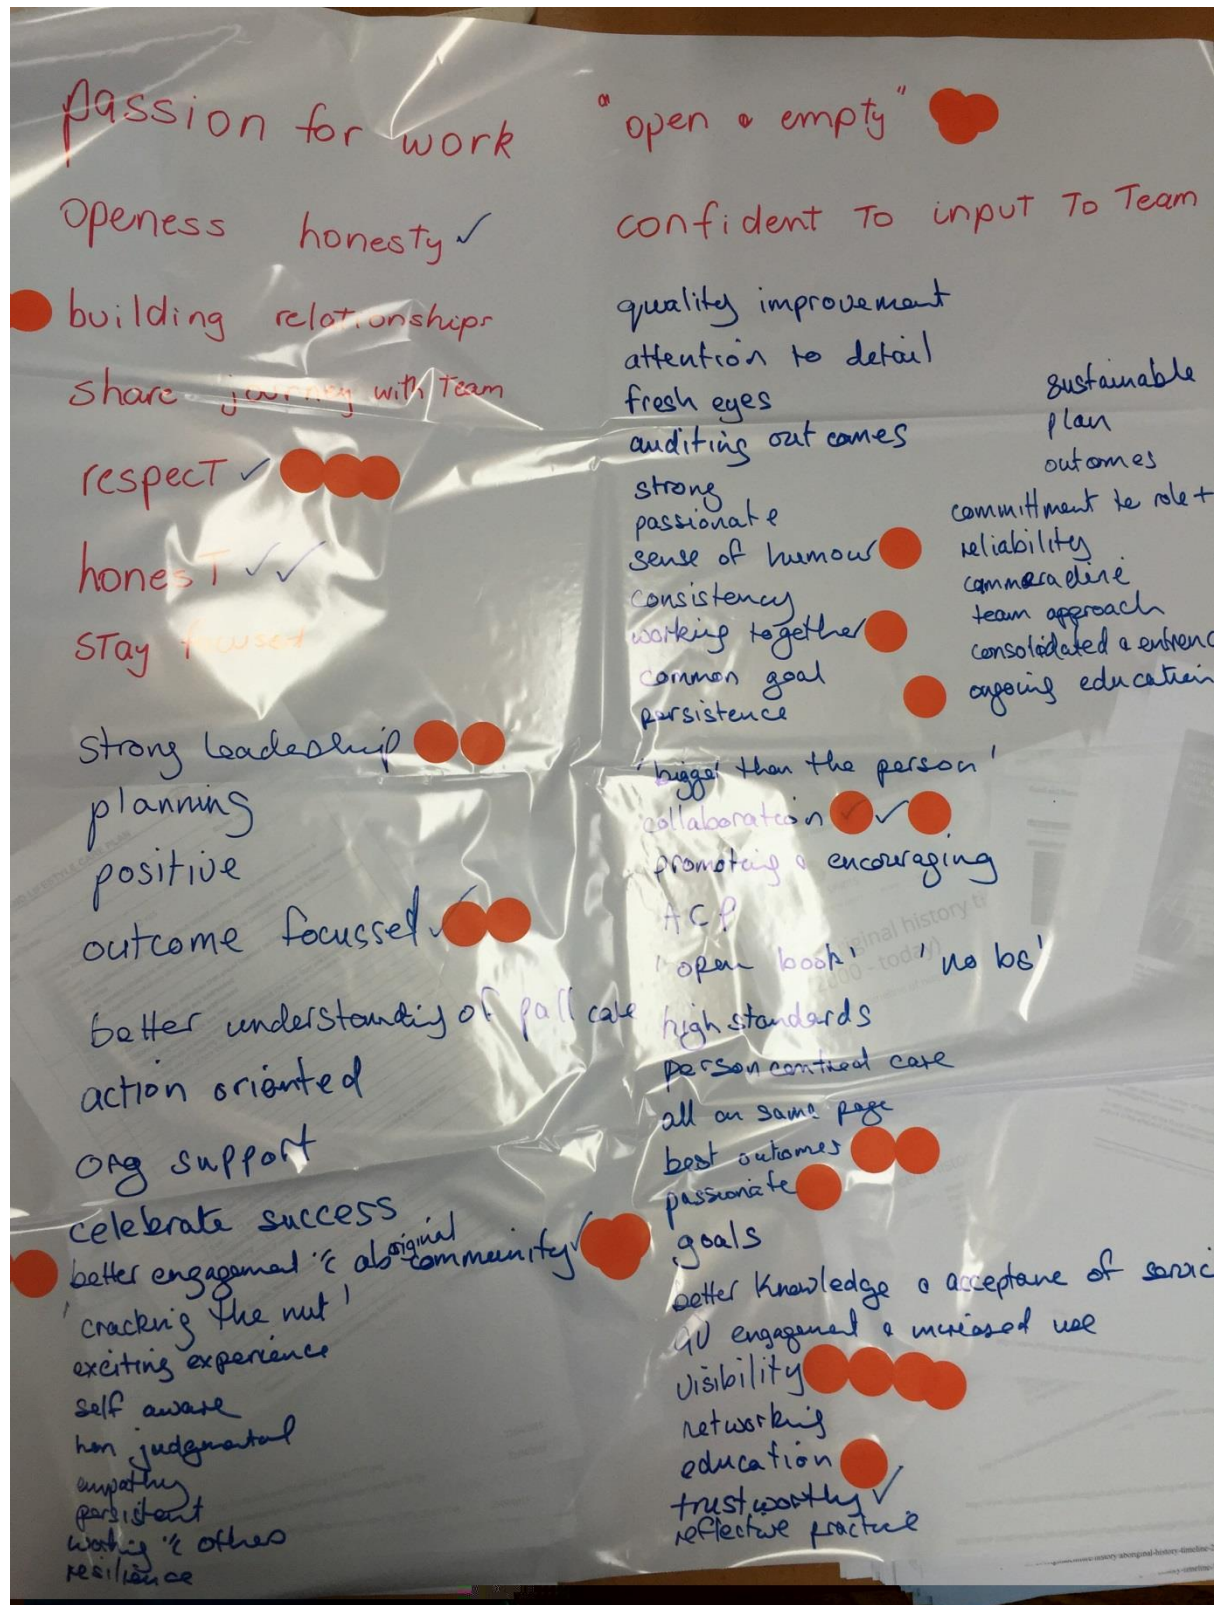 passion for work
openess honesty ✓
building relationships
share journey with Team
respecT ✓
honesT ✓✓
STay focused
strong leadership
planning
positive
outcome focussed ✓
better understanding of pall care
action oriented
org support
celebrate success
better engagement c̄ aboriginal community ✓
'cracking the nut'
exciting experience
self aware
non judgmental
empathy
persistent
working c̄ others
resilience
"open & empty"
confident To input To Team
quality improvement
attention to detail
fresh eyes
auditing outcomes
strong
passionate
sense of humour
consistency
working together
common goal
persistence
'bigger than the person'
collaboration ✓ ✓
promoting & encouraging
ACP
'open book' 'no bs'
high standards
person centred care
all on same page
best outcomes
passionate
goals
better knowledge & acceptance of
engagement & increased use
visibility
networking
education
trustworthy ✓
reflective practice
sustainable
plan
outcomes
committment to role +
reliability
cammeraderie
team approach
consolidated &
ongoing education